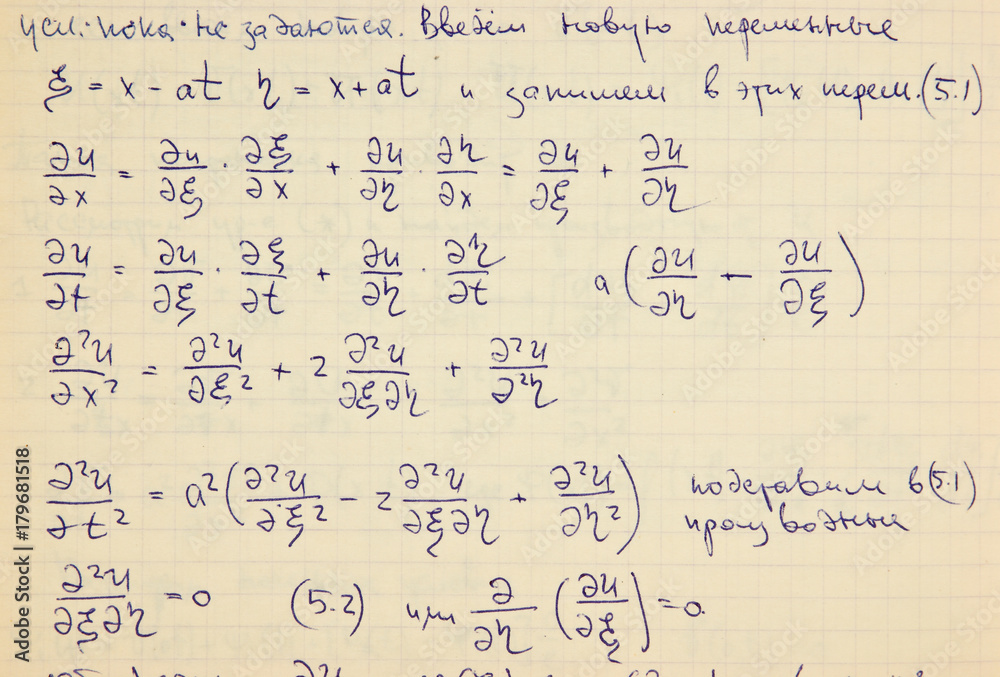 усл. пока не задаются. Введём новую переменные
ξ = x - at η = x + at и запишем в этих перем. (5.1)
∂u/∂x = ∂u/∂ξ · ∂ξ/∂x + ∂u/∂η · ∂η/∂x = ∂u/∂ξ + ∂u/∂η
∂u/∂t = ∂u/∂ξ · ∂ξ/∂t + ∂u/∂η · ∂η/∂t a(∂u/∂η - ∂u/∂ξ)
∂²u/∂x² = ∂²u/∂ξ² + 2 ∂²u/∂ξ∂η + ∂²u/∂²η
∂²u/∂t² = a²(∂²u/∂ξ² - 2 ∂²u/∂ξ∂η + ∂²u/∂η²) подставим в (5.1)
производные
∂²u/∂ξ∂η = 0 (5.2) или ∂/∂η (∂u/∂ξ) = 0.
Adobe Stock | #179681518